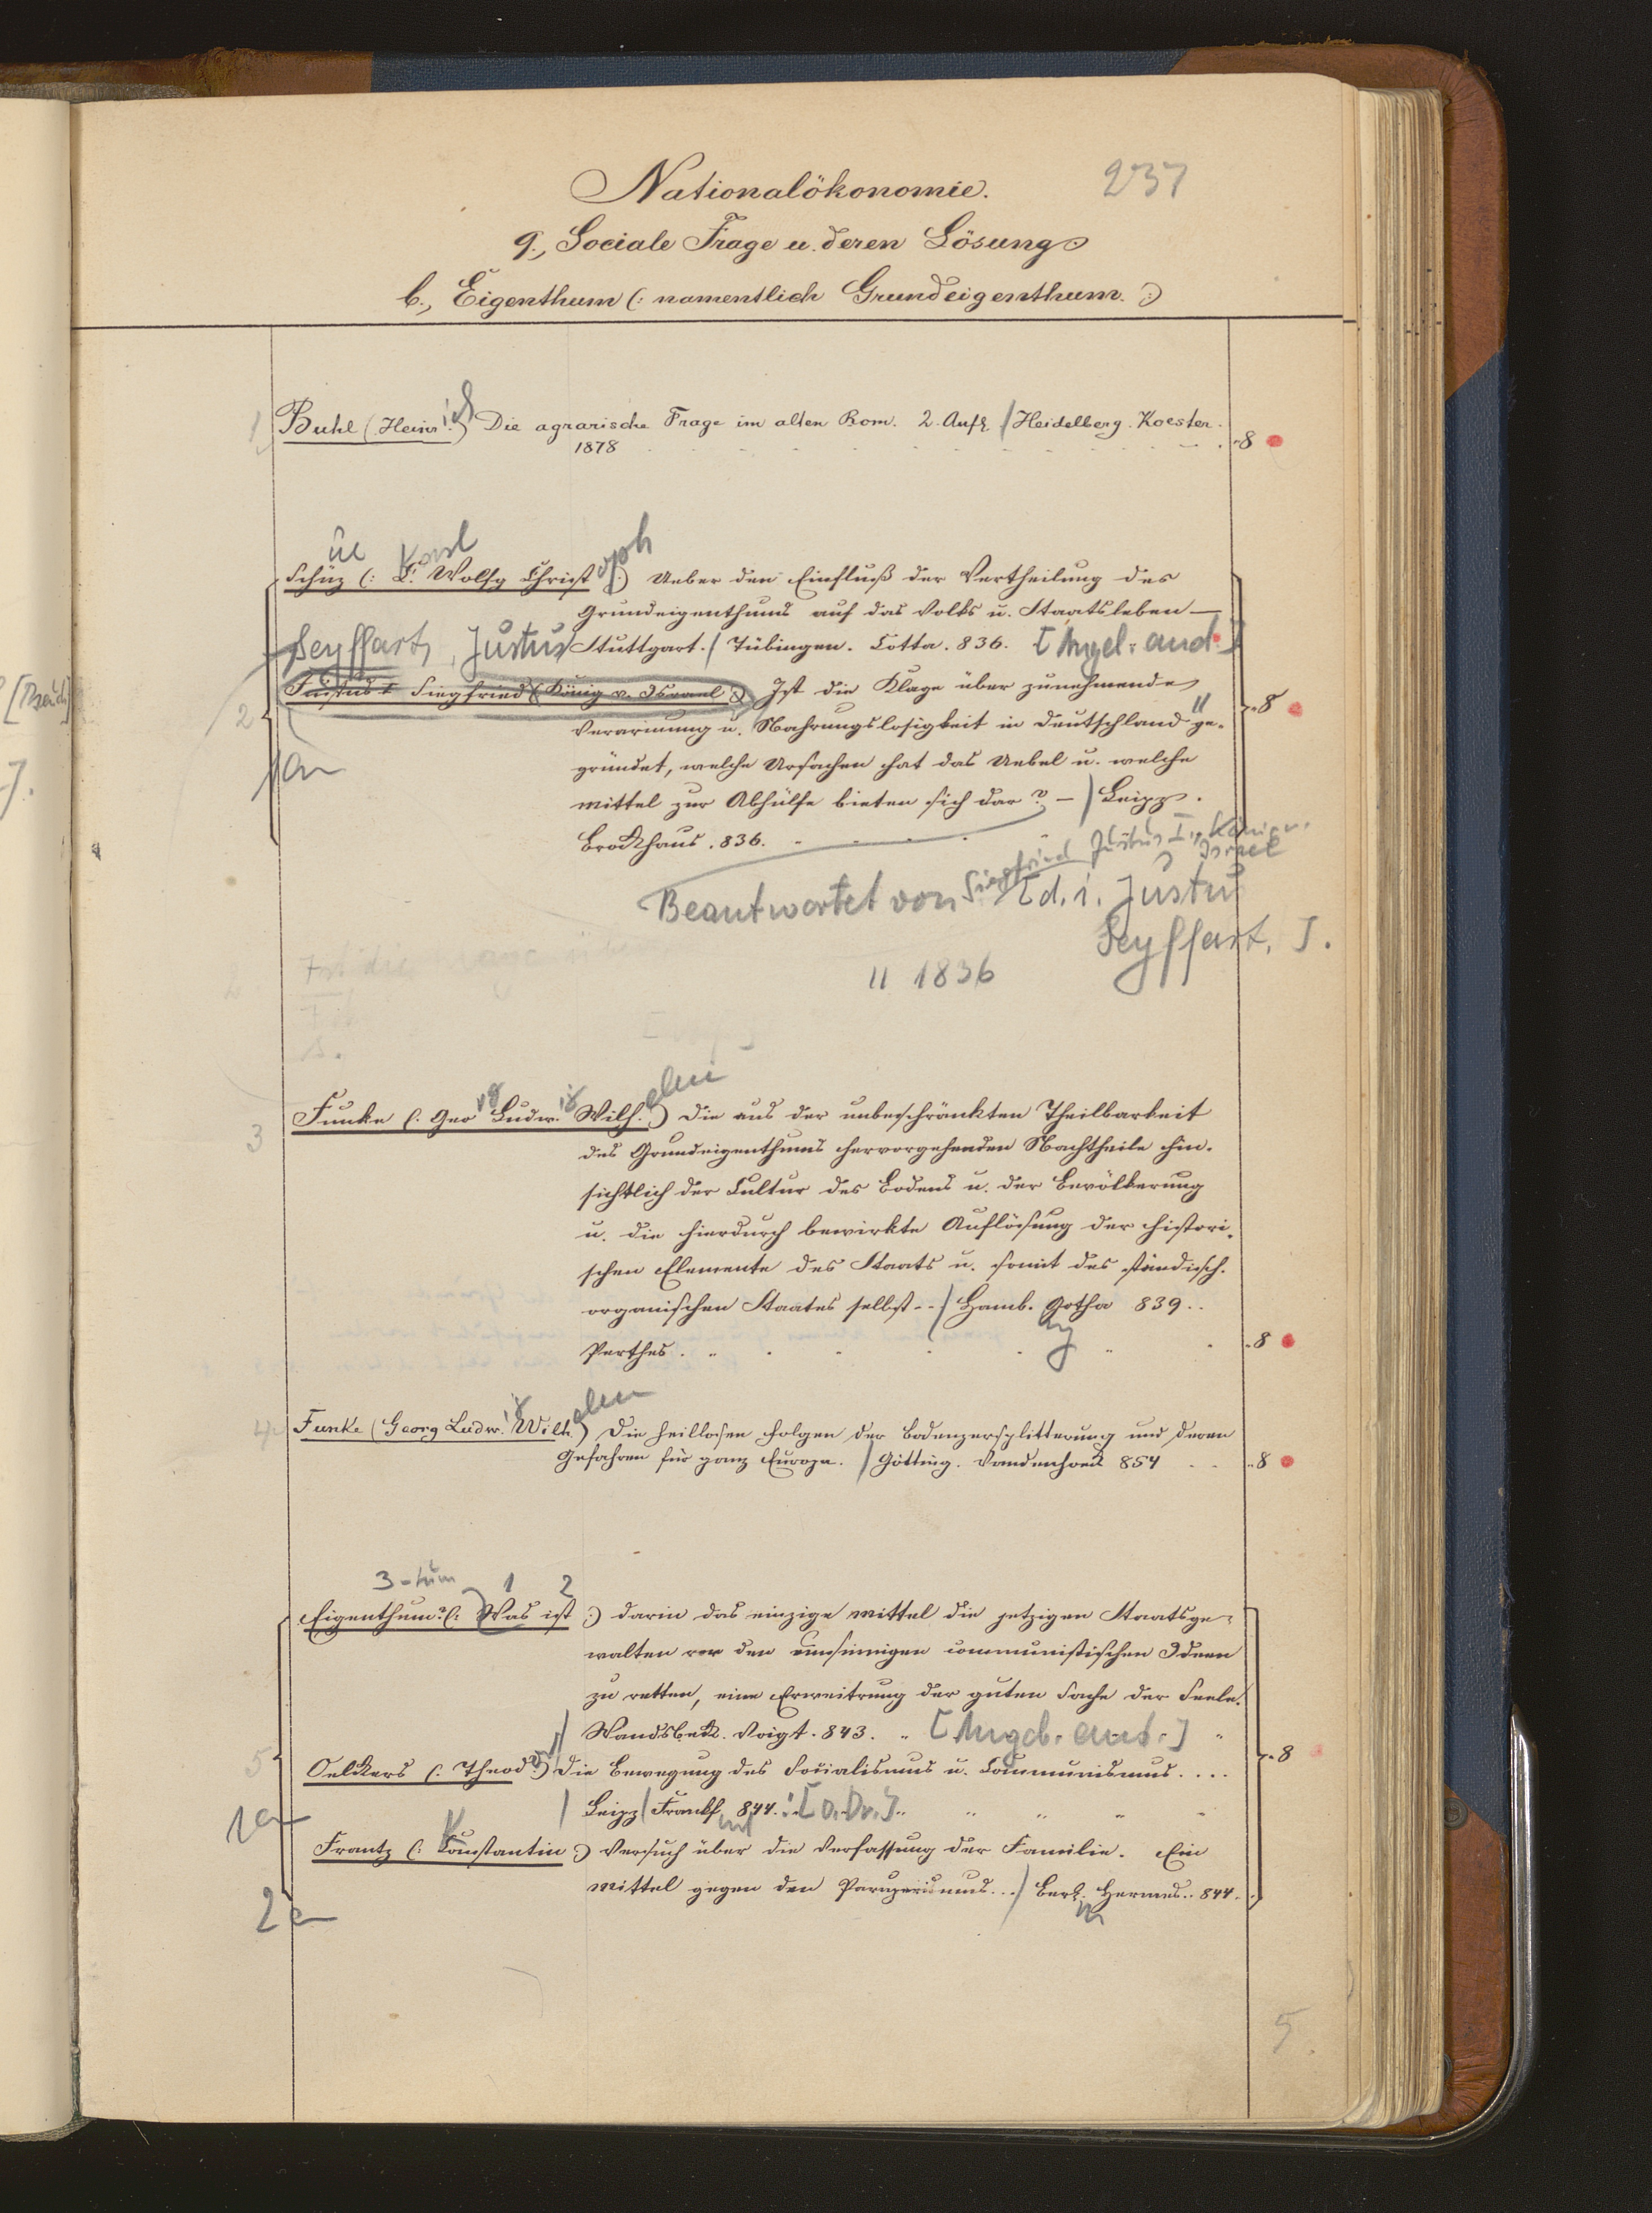 Nationalökonomie. 237
9., Sociale Frage u. deren Lösung.
b., Eigenthum (: namentlich Grundeigenthum. :)
1 Buhl (Heinrich) Die agrarische Frage im alten Rom. 2. Aufl. / Heidelberg. Koester.
1878 8
ue Karl oph
Schüz (: C. Wolfg Christ :) Ueber den Einfluß der Vertheilung des
Grundeigenthums auf das Volks u. Staatsleben —
Seyffart, Justus Stuttgart. / Tübingen. Cotta. 836. [Angeb. and.]
2 Justus I Siegfried (König v. Israel :) Ist die Klage über zunehmende 8
Verarmung u. Nahrungslosigkeit in Deutschland ge-
1a gründet, welche Ursachen hat das Uebel u. welche
Mittel zur Abhülfe bieten sich dar? — / Leipz.
Brockhaus. 836.
Beantwortet von Siegfried Justus I., König v. Israel [d. i. Justus
Seyffart, J.
1836
3 Funke (: Geo Ludw. Wilh. :) Die aus der unbeschränkten Theilbarkeit
des Grundeigenthums hervorgehenden Nachtheile hin-
sichtlich der Cultur des Bodens u. der Bevölkerung
u. die hierdurch bewirkte Auflösung der histori-
schen Elemente des Staats u. somit des ständisch-
organischen Staates selbst. / Hamb. Gotha 839.
Perthes. 8
4 Funke (Georg Ludw. Wilh.) Die heillosen Folgen der Bodenzersplitterung und deren
Gefahren für ganz Europa. / Götting. Vandenhoeck 854 8
3 -tum 1 2
Eigenthum? (: Was ist :) darin das einzige Mittel die jetzigen Staatsge-
walten vor den unsinnigen communistischen Ideen
zu retten, eine Erweitrung der guten Sache der Seele.
Wandsbeck. Voigt. 843. [Angeb. and.]
5 Oelckers (: Theod. :) Die Bewegung des Socialismus u. Communismus.... 8
1a / Leipz / Frankf. 844. [O. Dr.]
Frantz (: Constantin :) Versuch über die Verfassung der Familie. Ein
Mittel gegen den Pauperismus... / Berl. Hermes. 844.
2a
5